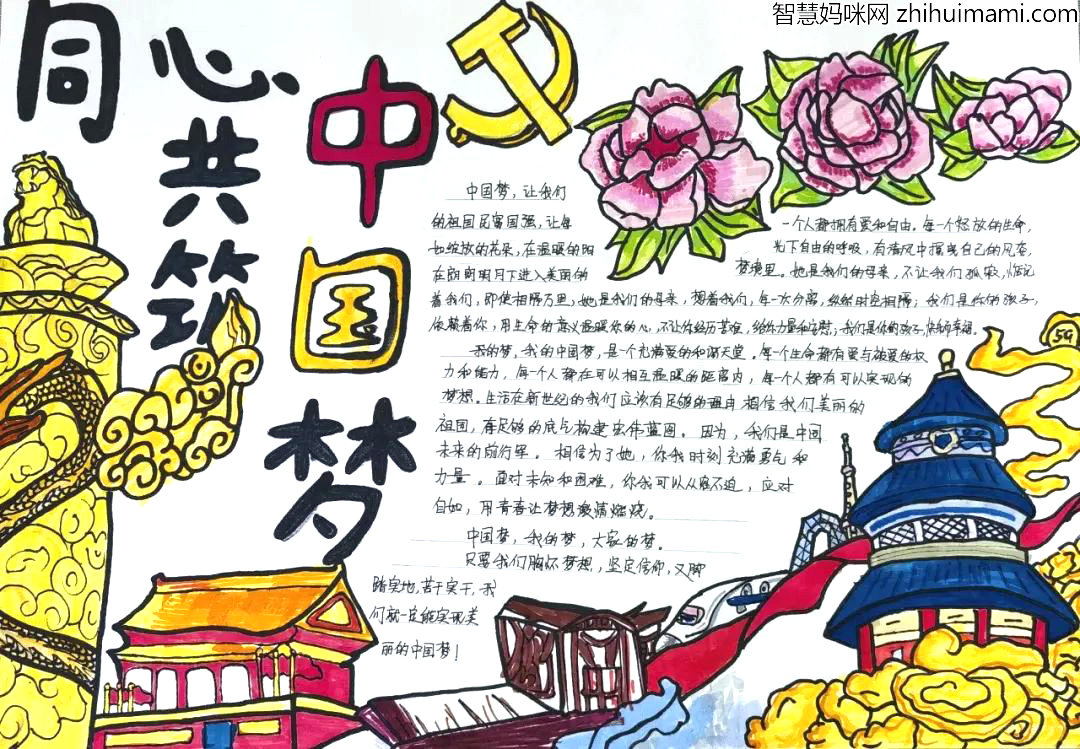 智慧妈咪网 zhihuimami.com
同心共筑
中国梦
中国梦，让我们
的祖国民富国强，让每
如绽放的花朵，在温暖的阳
在朗朗明月下进入美丽的
一个人都拥有爱和自由。每一个怒放的生命，
光下自由的呼吸，有清风中摇曳自己的风姿，
梦境里。她是我们的母亲，不让我们孤寂，惦记
着我们，即使相隔万里，她是我们的母亲，想着我们，每一次分离，纵然时空相隔；我们是你的孩子，
依赖着你，用生命的意义温暖你的心，不让你经历苦难，给你力量和安慰；我们是你的孩子，
我的梦，我的中国梦，是一个充满爱的和谐天堂。每个生命都有爱与被爱的权
力和能力，每一个人都在可以相互温暖的距离内，每一个人都有可以实现的
梦想。生活在新世纪的我们应该有足够的理由相信我们美丽的
祖国，有足够的底气构建宏伟蓝图。因为，我们是中国
未来的前行军。相信为了她，你我时刻充满勇气和
力量。面对未知和困难，你我可以从容不迫，应对
自如，用青春让梦想激情燃烧。
中国梦，我的梦，大家的梦。
只要我们胸怀梦想，坚定信仰，又脚
踏实地，苦干实干，我
们就一定能实现美
丽的中国梦！
5G